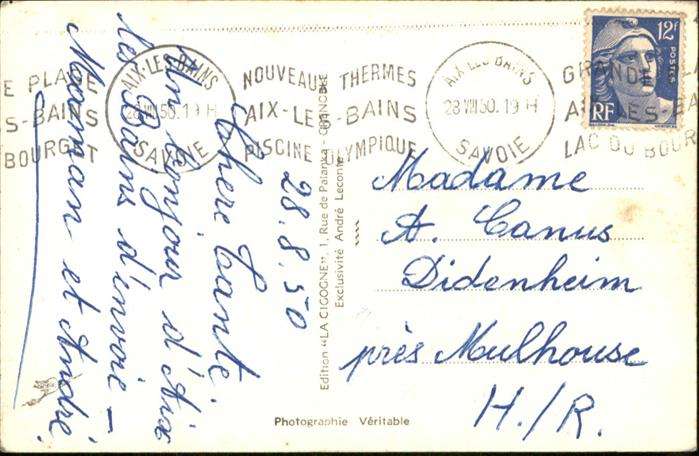 28.8.50
Chère Tante.
Un bonjour d'Aix
les Bains d'envoie –
Maman et André.
E PLAGE
S-BAINS
BOURGET
AIX-LES-BAINS
28 VIII 50. 19 H
SAVOIE
NOUVEAUX THERMES
AIX-LES-BAINS
PISCINE OLYMPIQUE
AIX-LES-BAINS
28 VIII 50. 19 H
SAVOIE
GRANDE PLA
AIX-LES-BA
LAC DU BOUR
12F
POSTES
RF
Edition "LA CIGOGNE", 1, Rue de Palanka - GRENOBLE
Exclusivité André Leconte
Madame
A. Canus
Didenheim
près Mulhouse
H./R.
Photographie Véritable